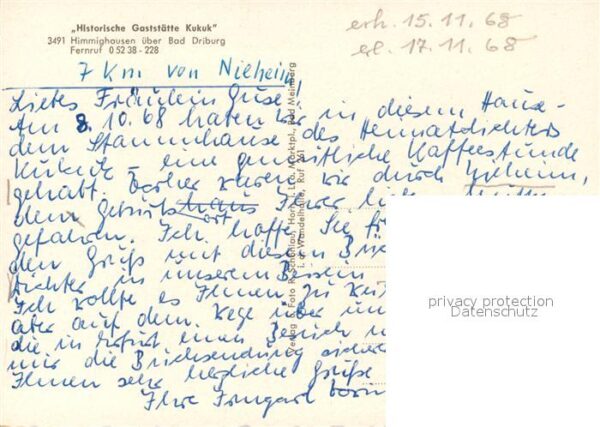 „Historische Gaststätte Kukuk"
3491 Himmighausen über Bad Driburg
Fernruf 0 52 38 - 228
erh. 15.11.68
erl. 17.11.68
7 Km von Nieheim
Liebes Fräulein Guse!
Am 8.10.68 haben wir in diesem Hause -
dem Stammhause des Heimatdichters
Kukuk - eine gemütliche Kaffeestunde
gehabt. Vorher waren wir durch
dem Geburtshaus Ihrer lieben
ort
gefahren. Ich hoffe, Sie
den Gruß mit diesem
Dichter in unserem
Ich wollte es Ihnen zu
aber auf dem Wege über
die in Erfurt einen Besuch
mir die Buchsendung
Ihnen sehr herzliche Grüße
Ihre Irmgard
Verlag Foto R. Schönhaus Horn i. L., Marktpl., Bad Meinberg
i. d. Wandelhalle, Ruf 261
privacy protection
Datenschutz